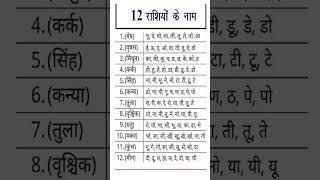 12 राशियों के नाम
1. (मेष) चू, चे, चो, ला, ली, लू, ले, लो, आ
2. (वृषभ) ई, ऊ, ए, ओ, वा, वी, वू, वे, वो
3. (मिथुन) का, की, कू, घ, ङ, छ, के, को, ह
4. (कर्क) ही, हू, हे, हो, डा, डी, डू, डे, डो
5. (सिंह) मा, मी, मू, मे, मो, टा, टी, टू, टे
6. (कन्या) पा, पी, पू, ष, ण, ठ, पे, पो
7. (तुला) रा, री, रू, रे, रो, ता, ती, तू, ते
8. (वृश्चिक) तो, ना, नी, नू, ने, नो, या, यी, यू
9. (धनु) ये, यो, भा, भी, भू, धा, फा, ढा, भे
10. (मकर) भो, जा, जी, खी, खू, खे, खो, गा, गी
11. (कुंभ) गू, गे, गो, सा, सी, सू, से, सो, दा
12. (मीन) दी, दू, थ, झ, ञ, दे, दो, चा, ची
4.(कर्क)
5.(सिंह)
6.(कन्या)
7.(तुला)
8.(वृश्चिक)
डू, डे, डो
टा, टी, टू, टे
ण, ठ, पे, पो
ती, तू, ते
नो, या, यी, यू